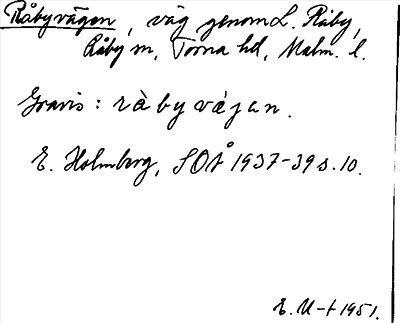 Råbyvägen, väg genom L. Råby,
Råby sn, Torna hd, Malm. l.
Gravis: ràbyvájan.
E. Holmberg, SOÅ 1937-39 s. 10.
E. U-t 1951.